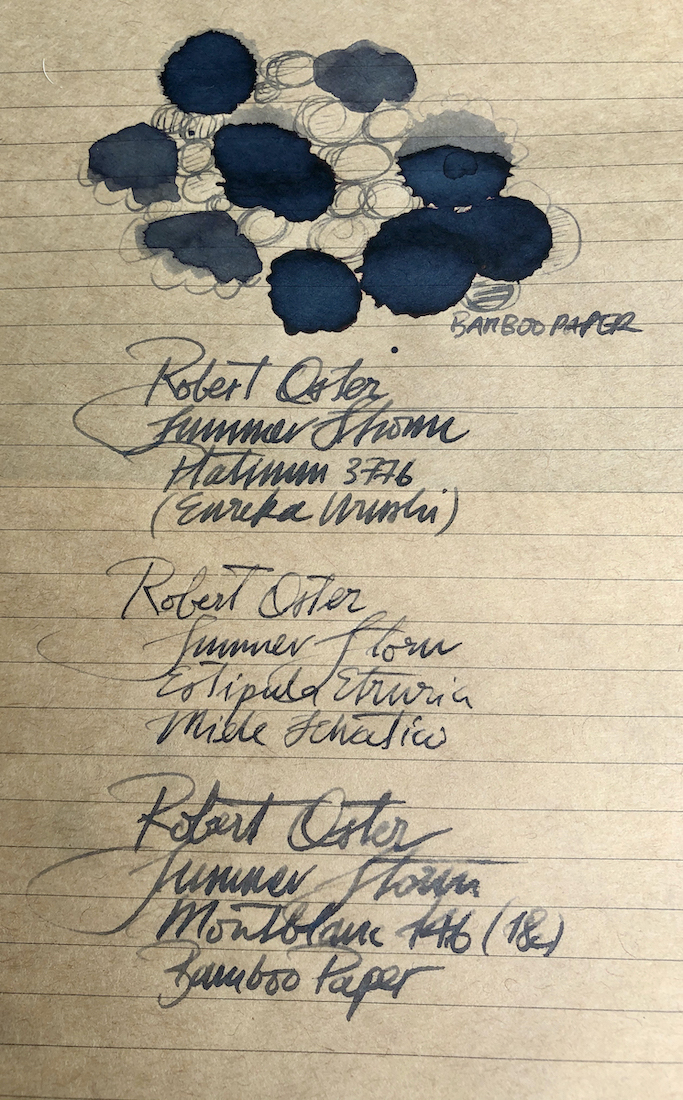 BAMBOO PAPER
Robert Oster
Summer Storm
Platinum 3776
(Eureka Urushi)
Robert Oster
Summer Storm
Estipula Etruria
Miele Selvatico
Robert Oster
Summer Storm
Montblanc 146 (18c)
Bamboo Paper